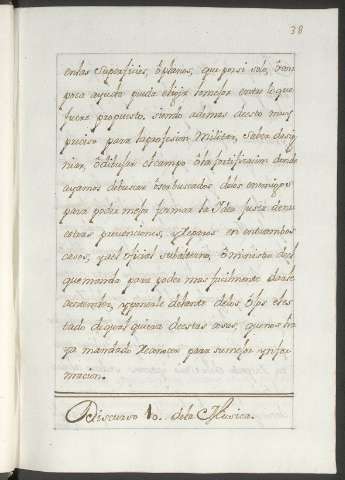 38
enlas Superficies, ô planos, que por si solo, ô con
poca ayuda pueda elijir lo mejor entre lo que
fuere propuesto, siendo ademas de esto muy
preciso para la profesion Militar, saber desig
niar, ô dibujar el campo ô la fortificacion donde
ayamos de buscar ô ser buscados de los enemigos
para poder mejor formar la Idea justa de nu
estras prevenciones, y Reparos en entrambos
casos, y al oficial subalterno, ô ministro de el
que manda para poder mas facilmente darse
a entender, y ponerle delante de los ojos el es
tado de qual quiera de estas cosas, que nos ha
ya mandado Reconocer para su mejor ynfor
macion.
Discurso 10. de la Musica.